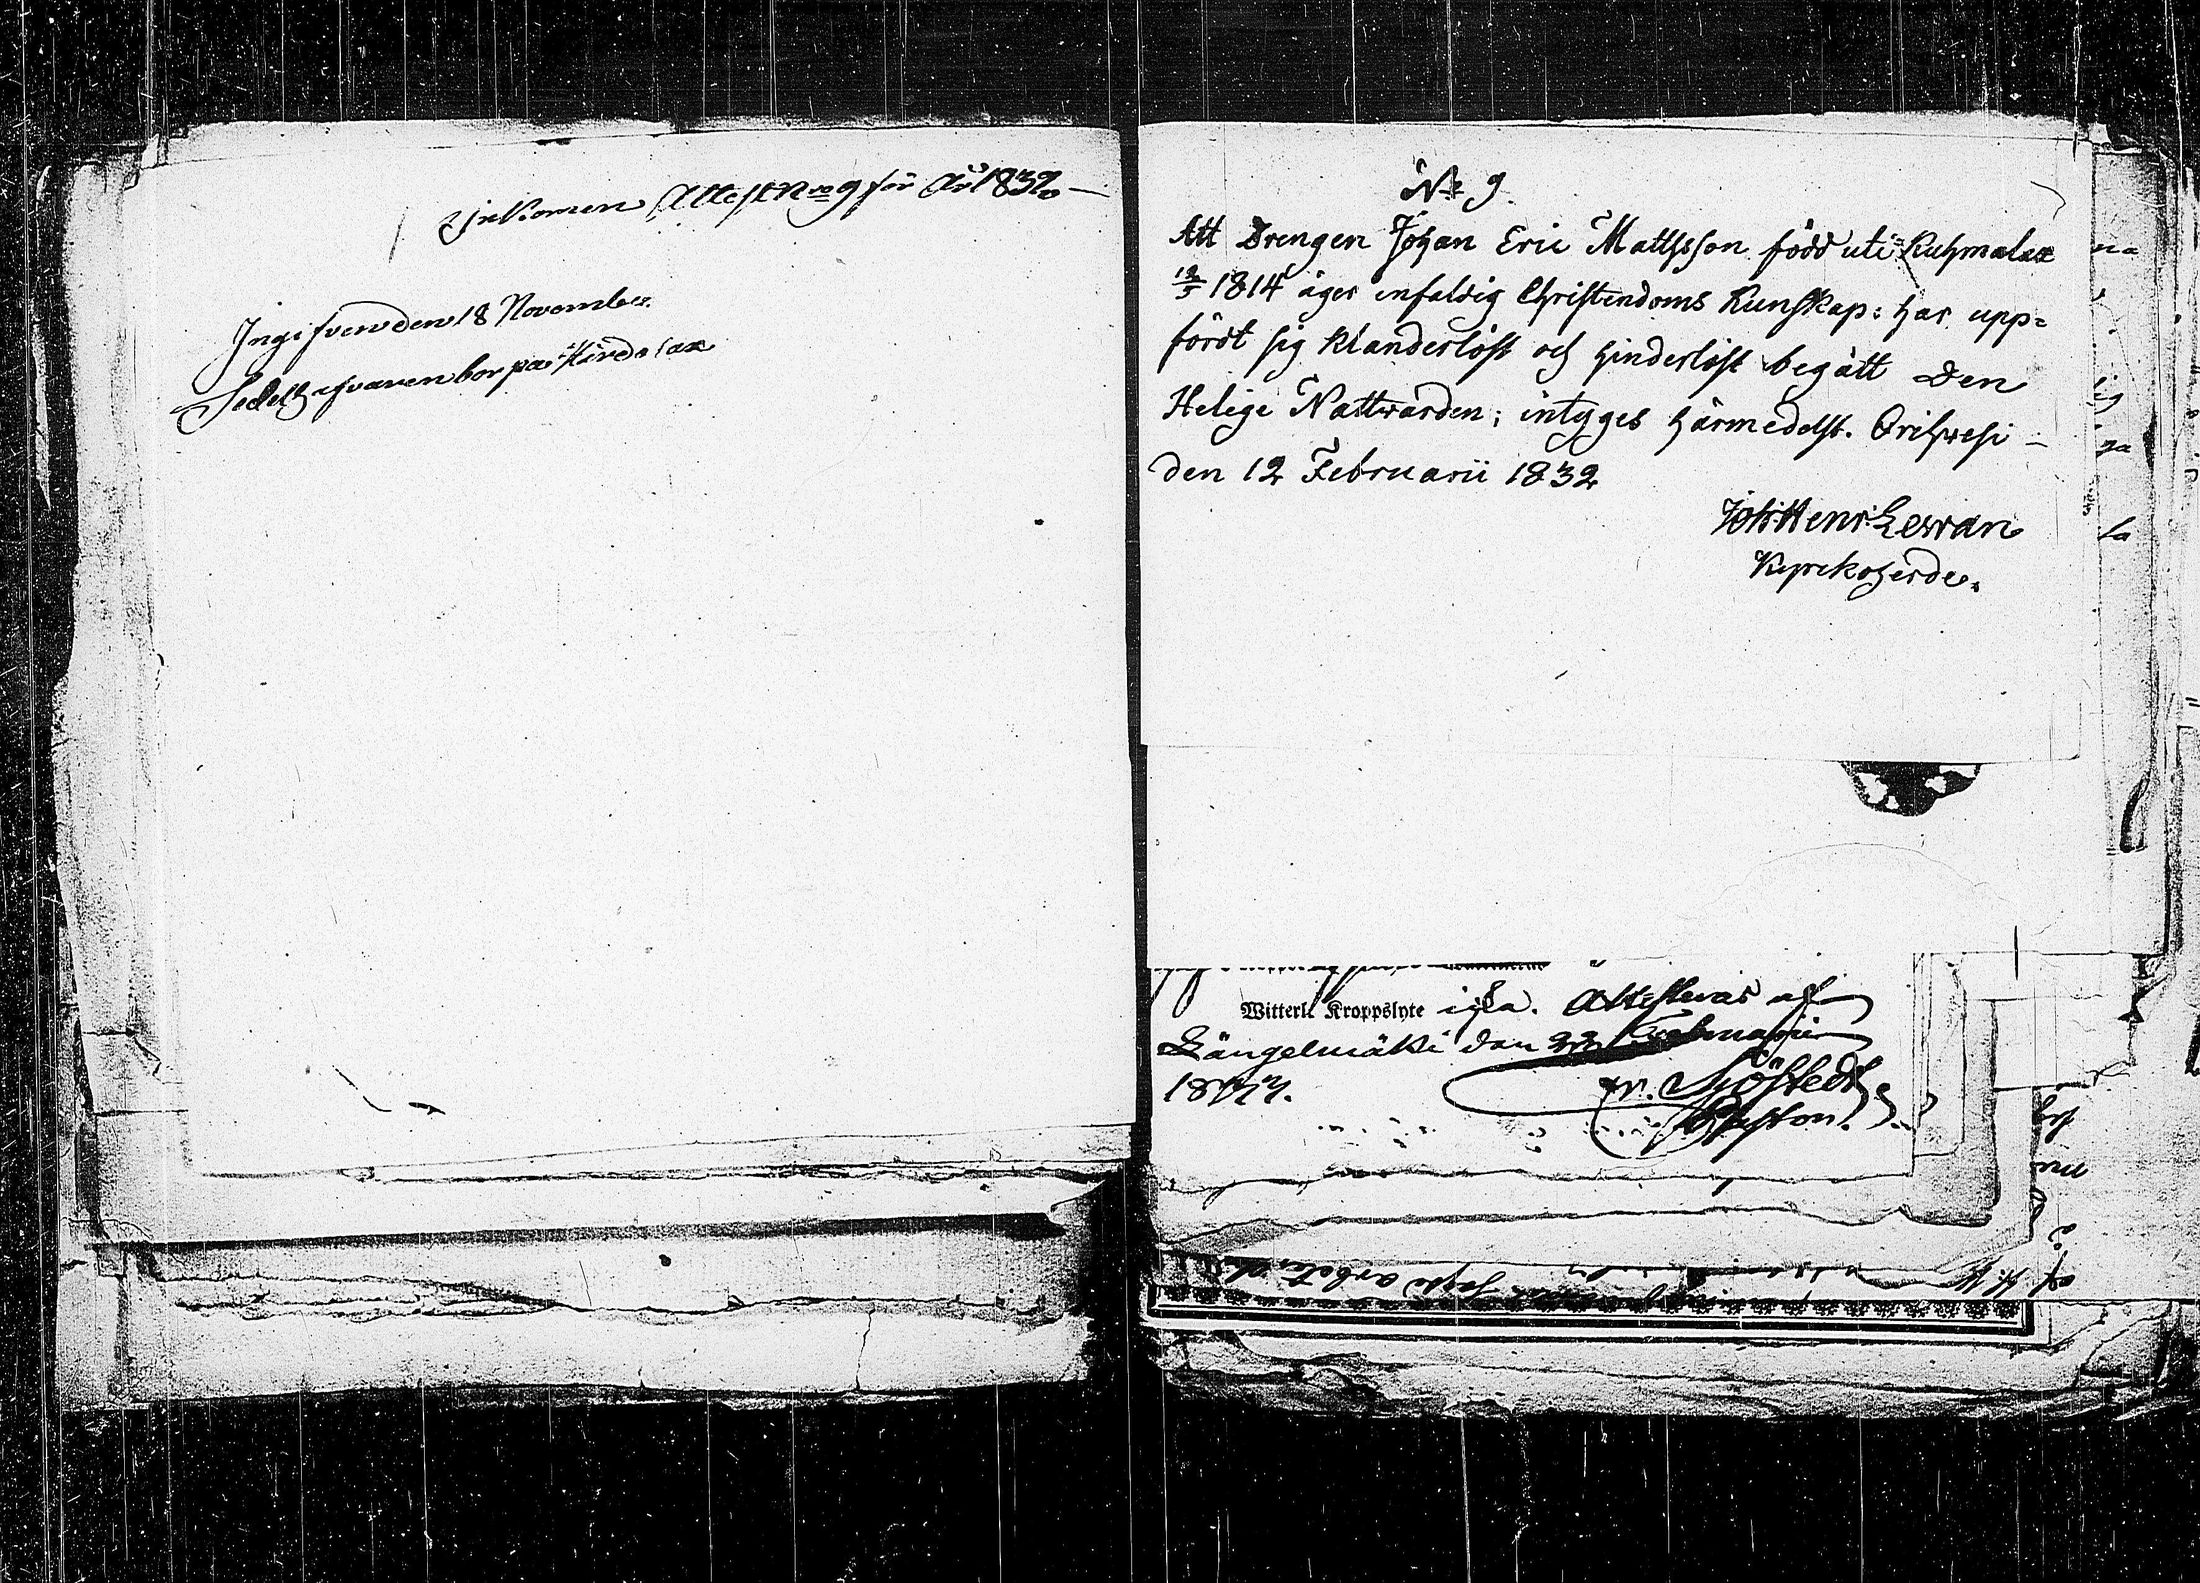 Inkommen Attest No 9 för År 1832
Ingifven den 18 November
Sedelhafvaren bor på Hirdslax
No 9.
Att Drengen Johan Eric Mathsson född uti Kuhmalax
12/5 1814 äger enfaldig Christendoms Kunskap: har upp=
fördt sig klanderlöst och hinderlöst begått Den
Helige Nattwarden; intyges härmedelst. Orihwesi
den 12 Februarii 1832
Joh: Henr: Lewan
Kyrckoherde.
Witterl. Kroppslyte icka. Attesteras af
Längelmäki den 22 Februarii
1877.
Sjöstedt
Pastor.